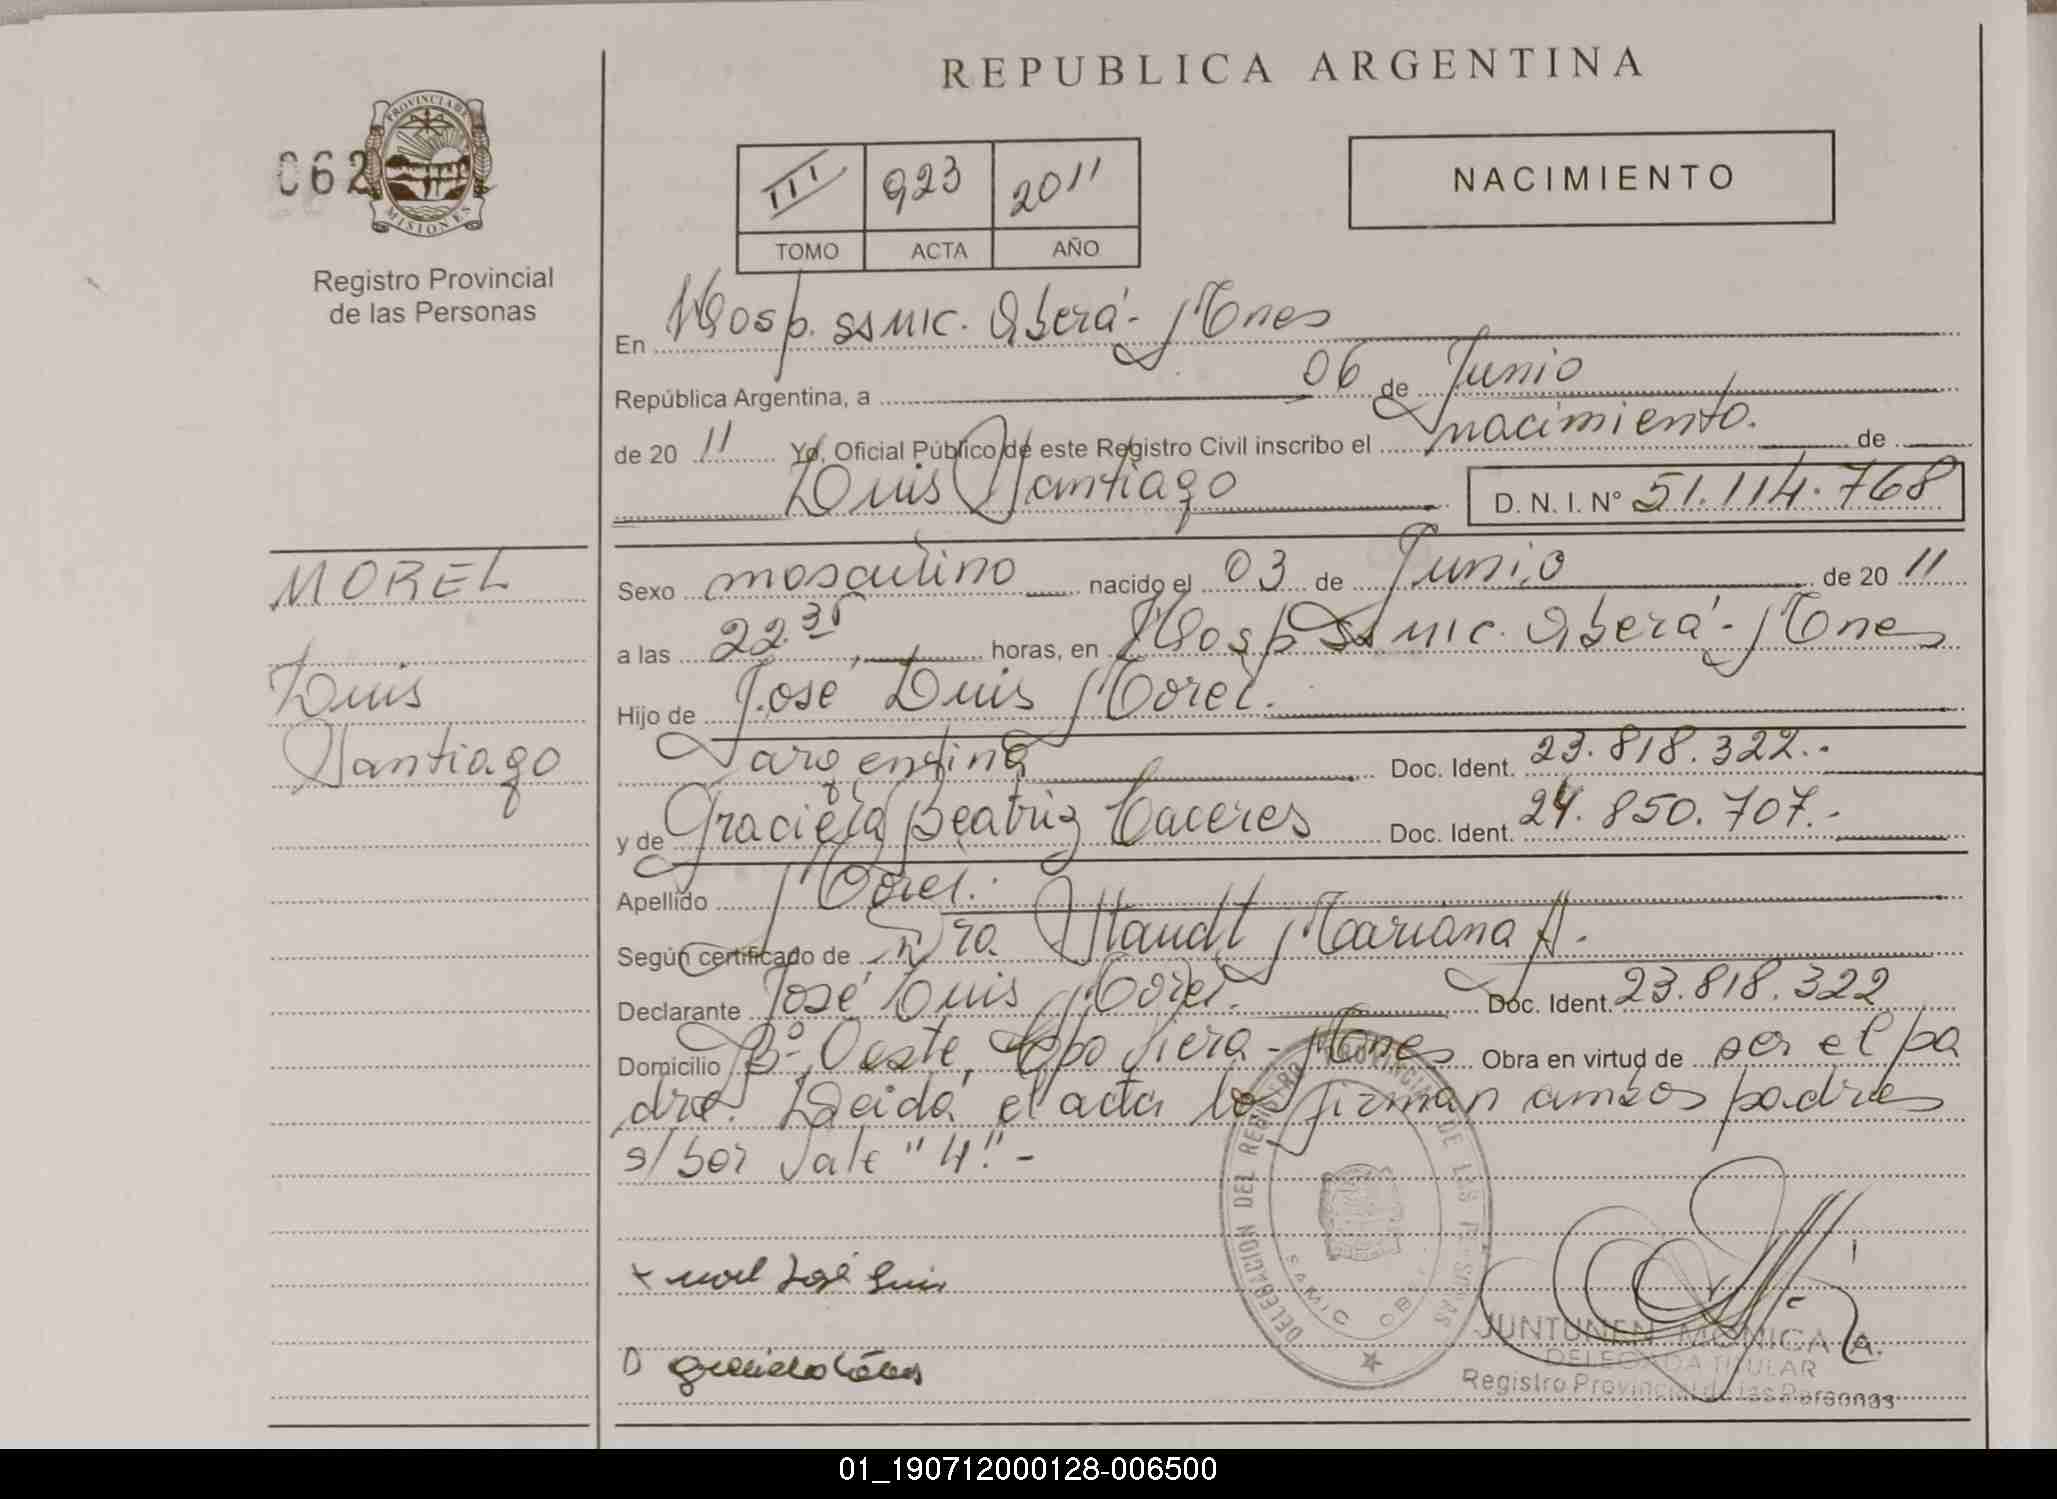 REPUBLICA ARGENTINA
062
PROVINCIA DE
MISIONES
Registro Provincial
de las Personas
III 923 2011
TOMO ACTA AÑO
NACIMIENTO
En Hosp. SSMIC. Oberá - Mnes
República Argentina, a 06 de Junio
de 20 11 Yo, Oficial Público de este Registro Civil inscribo el nacimiento. de
Luis Santiago D. N. I. Nº 51.114.768
MOREL
Luis
Santiago
Sexo masculino nacido el 03 de Junio de 20 11
a las 22.35 horas, en Hosp SSMIC. Oberá - Mnes
Hijo de José Luis Morel.
argentina Doc. Ident. 23.818.322.-
y de Graciela Beatriz Caceres Doc. Ident. 24.850.707.-
Apellido Morel.
Según certificado de Dra Staudt Mariana A.
Declarante José Luis Morel. Doc. Ident. 23.818.322
Domicilio Bº Oeste, Cpo Viera - Mnes Obra en virtud de ser el pa
dre. Leida el acta la firman ambos padres
s/bor Vale "4".-
x Morel José Luis
Graciela Cáceres
DELEGACION DEL REGISTRO PROVINCIAL DE LAS PERSONAS
SAMIC OBERA
JUNTUNEN MONICA A.
DELEGADA TITULAR
Registro Provincial de las Personas
01_190712000128-006500